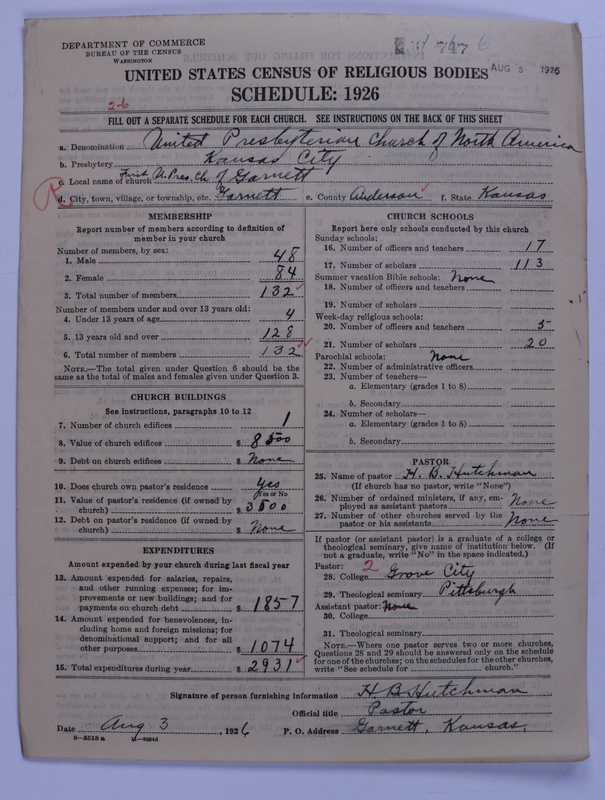 DEPARTMENT OF COMMERCE
BUREAU OF THE CENSUS
WASHINGTON
AUG 5 1926
UNITED STATES CENSUS OF RELIGIOUS BODIES
SCHEDULE: 1926
2-6
FILL OUT A SEPARATE SCHEDULE FOR EACH CHURCH. SEE INSTRUCTIONS ON THE BACK OF THIS SHEET
a. Denomination United Presbyterian Church of North America
b. Presbytery Kansas City
c. Local name of church First U. Pres. Ch. of Garnett
d. City, town, village, or township, etc. Garnett e. County Anderson f. State Kansas
MEMBERSHIP
Report number of members according to definition of member in your church
Number of members, by sex:
1. Male 48
2. Female 84
3. Total number of members 132
Number of members under and over 13 years old:
4. Under 13 years of age 4
5. 13 years old and over 128
6. Total number of members 132
NOTE.—The total given under Question 6 should be the
same as the total of males and females given under Question 3.
CHURCH BUILDINGS
See instructions, paragraphs 10 to 12
7. Number of church edifices 1
8. Value of church edifices $ 8500
9. Debt on church edifices $ None
10. Does church own pastor's residence Yes
Yes or No
11. Value of pastor's residence (if owned by
church) $ 3500
12. Debt on pastor's residence (if owned by
church) $ None
EXPENDITURES
Amount expended by your church during last fiscal year
13. Amount expended for salaries, repairs,
and other running expenses; for im-
provements or new buildings; and for
payments on church debt $ 1857
14. Amount expended for benevolences, in-
cluding home and foreign missions; for
denominational support; and for all
other purposes $ 1074
15. Total expenditures during year $ 2931
CHURCH SCHOOLS
Report here only schools conducted by this church
Sunday schools:
16. Number of officers and teachers 17
17. Number of scholars 113
Summer vacation Bible schools: None
18. Number of officers and teachers
19. Number of scholars
Week-day religious schools:
20. Number of officers and teachers 5
21. Number of scholars 20
Parochial schools: None
22. Number of administrative officers
23. Number of teachers—
a. Elementary (grades 1 to 8)
b. Secondary
24. Number of scholars—
a. Elementary (grades 1 to 8)
b. Secondary
PASTOR
25. Name of pastor H. B. Hutchman
(If church has no pastor, write "None")
26. Number of ordained ministers, if any, em-
ployed as assistant pastors None
27. Number of other churches served by the
pastor or his assistants None
If pastor (or assistant pastor) is a graduate of a college or
theological seminary, give name of institution below. (If
not a graduate, write "No" in the space indicated.)
Pastor: 2
28. College Grove City
29. Theological seminary Pittsburgh
Assistant pastor: None
30. College
31. Theological seminary
NOTE.—Where one pastor serves two or more churches,
Questions 28 and 29 should be answered only on the schedule
for one of the churches; on the schedules for the other churches,
write "See schedule for church."
Signature of person furnishing information H B Hutchman
Official title Pastor
Date Aug 3, 1926 P. O. Address Garnett, Kansas.
8—5518 a